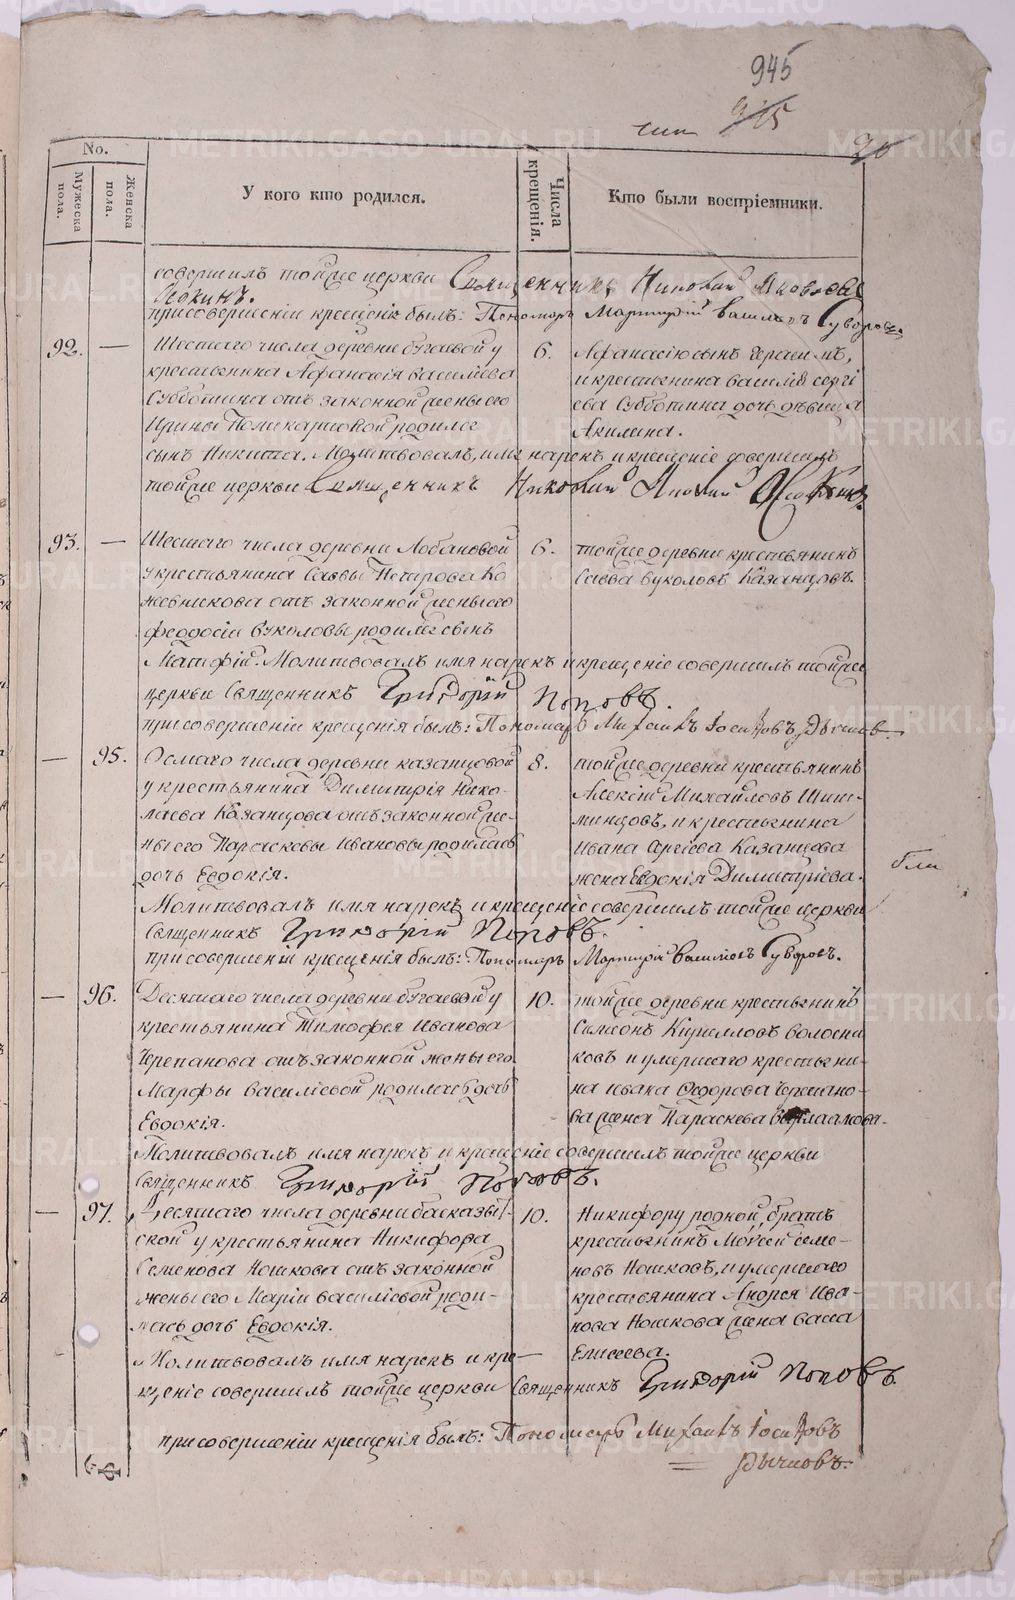 945
925
20
No.
Мужеска пола.
Женска пола.
У кого кто родился.
Числа крещенія.
Кто были воспріемники.
совершилъ тойже церкви Священникъ Николай Яковлевъ
при совершеніи крещенія былъ: Пономарь Мартирій Васильевъ Суворовъ
92. — Шестаго числа деревни Бугаевой у
крестьянина Афанасія Василіева
Субботина отъ законной жены его
Ирины Поликарповой родился
сынъ Никита. Молитвовалъ, имя нарекъ и крещеніе совершилъ
тойже церкви Священникъ Николай
6. Афанасію сынъ Герасимъ,
и крестьянина Василія Сергі-
ева Субботина дочь дѣвица
Акилина.
93. — Шестаго числа деревни Лобановой
у крестьянина Саввы Петрова Ко
жевникова отъ законной жены его
Феодосіи Вуколовы родился сынъ
Матфій. Молитвовалъ имя нарекъ и крещеніе совершилъ тойже
церкви Священникъ Григорій Поповъ.
при совершеніи крещенія былъ: Пономарь Михаилъ Іосифовъ
6. тойже деревни крестьянинъ
Савва Вуколовъ Казанцовъ
— 95. Осмаго числа деревни Казанцовой
у крестьянина Димитрія Нико-
лаева Казанцова отъ законной же-
ны его Параскевы Ивановы родилась
дочь Евдокія.
Молитвовалъ имя нарекъ и крещеніе совершилъ тойже церкви
Священникъ Григорій Поповъ.
при совершеніи крещенія былъ: Пономарь Мартирій Васильевъ Суворовъ.
8. тойже деревни крестьянинъ
Алексій Михайловъ Шип-
минцовъ, и крестьянина
Ивана Сергіева Казанцова
жена Евдокія Димитріева.
— 96. Десятаго числа деревни Бугаевой у
крестьянина Тимофея Иванова
Черепанова отъ законной жены его
Марфы Василіевой родилась дочь
Евдокія.
Молитвовалъ имя нарекъ и крещеніе совершилъ тойже церкви
Священникъ Григорій Поповъ.
10. тойже деревни крестьянинъ
Самсонъ Кирилловъ Волосни
ковъ и умершаго крестьяни-
на Ивана Федорова Черепано-
ва жена Параскева Варлаамова.
— 97. Десятаго числа деревни
ской у крестьянина Никифора
Семенова Ношкова отъ законной
жены его Маріи Василіевой роди-
лась дочь Евдокія.
Молитвовалъ имя нарекъ и кре-
щеніе совершилъ тойже церкви Священникъ Григорій Поповъ.
10. Никифору родной братъ
крестьянинъ Моѵсей Семе-
новъ Ношковъ, и умершаго
крестьянина Андрея Ива-
нова Ношкова жена Васса
Елисеева.
при совершеніи крещенія былъ: Пономарь Михаилъ Іосифовъ
METRIKI.GASO-URAL.RU